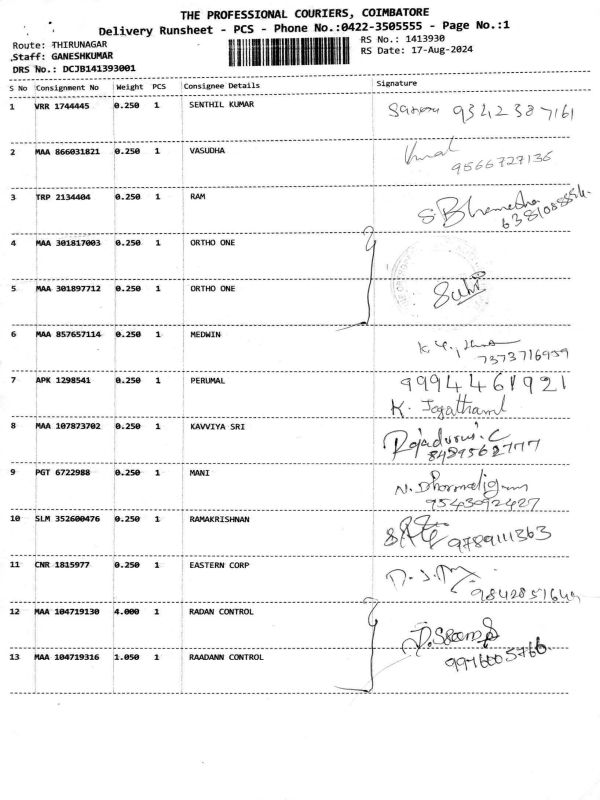 THE PROFESSIONAL COURIERS, COIMBATORE
Delivery Runsheet - PCS - Phone No.:0422-3505555 - Page No.:1
Route: THIRUNAGAR RS No.: 1413930
Staff: GANESHKUMAR RS Date: 17-Aug-2024
DRS No.: DCJB141393001
S No Consignment No Weight PCS Consignee Details Signature
1 VRR 1744445 0.250 1 SENTHIL KUMAR 9342387161
2 MAA 866031821 0.250 1 VASUDHA
9566727136
3 TRP 2134404 0.250 1 RAM
4 MAA 301817003 0.250 1 ORTHO ONE
5 MAA 301897712 0.250 1 ORTHO ONE
6 MAA 857657114 0.250 1 MEDWIN
7373716959
7 APK 1298541 0.250 1 PERUMAL 9994461921
K.
8 MAA 107873702 0.250 1 KAVVIYA SRI
9 PGT 6722988 0.250 1 MANI
9543092427
10 SLM 352600476 0.250 1 RAMAKRISHNAN 9789111363
11 CNR 1815977 0.250 1 EASTERN CORP
12 MAA 104719130 4.000 1 RADAN CONTROL
13 MAA 104719316 1.050 1 RAADANN CONTROL